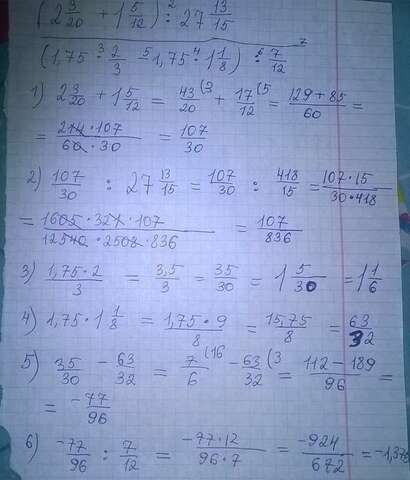 (2 3/20 + 1 5/12) :² 27 13/15
(1,75 ·³ 2/3 -⁵ 1,75 ·⁴ 1 1/8) :⁶ 7/12 7
1) 2 3/20 + 1 5/12 = 43/20 (3 + 17/12 (5 = 129+85/60 =
= 214·107/60·30 = 107/30
2) 107/30 : 27 13/15 = 107/30 : 418/15 = 107·15/30·418
= 1605·321·107/12540·2508·836 = 107/836
3) 1,75·2/3 = 3,5/3 = 35/30 = 1 5/30 = 1 1/6
4) 1,75·1 1/8 = 1,75·9/8 = 15,75/8 = 63/32
5) 35/30 - 63/32 = 7/6 (16 - 63/32 (3 = 112-189/96 =
= -77/96
6) -77/96 : 7/12 = -77·12/96·7 = -924/672 = -1,375